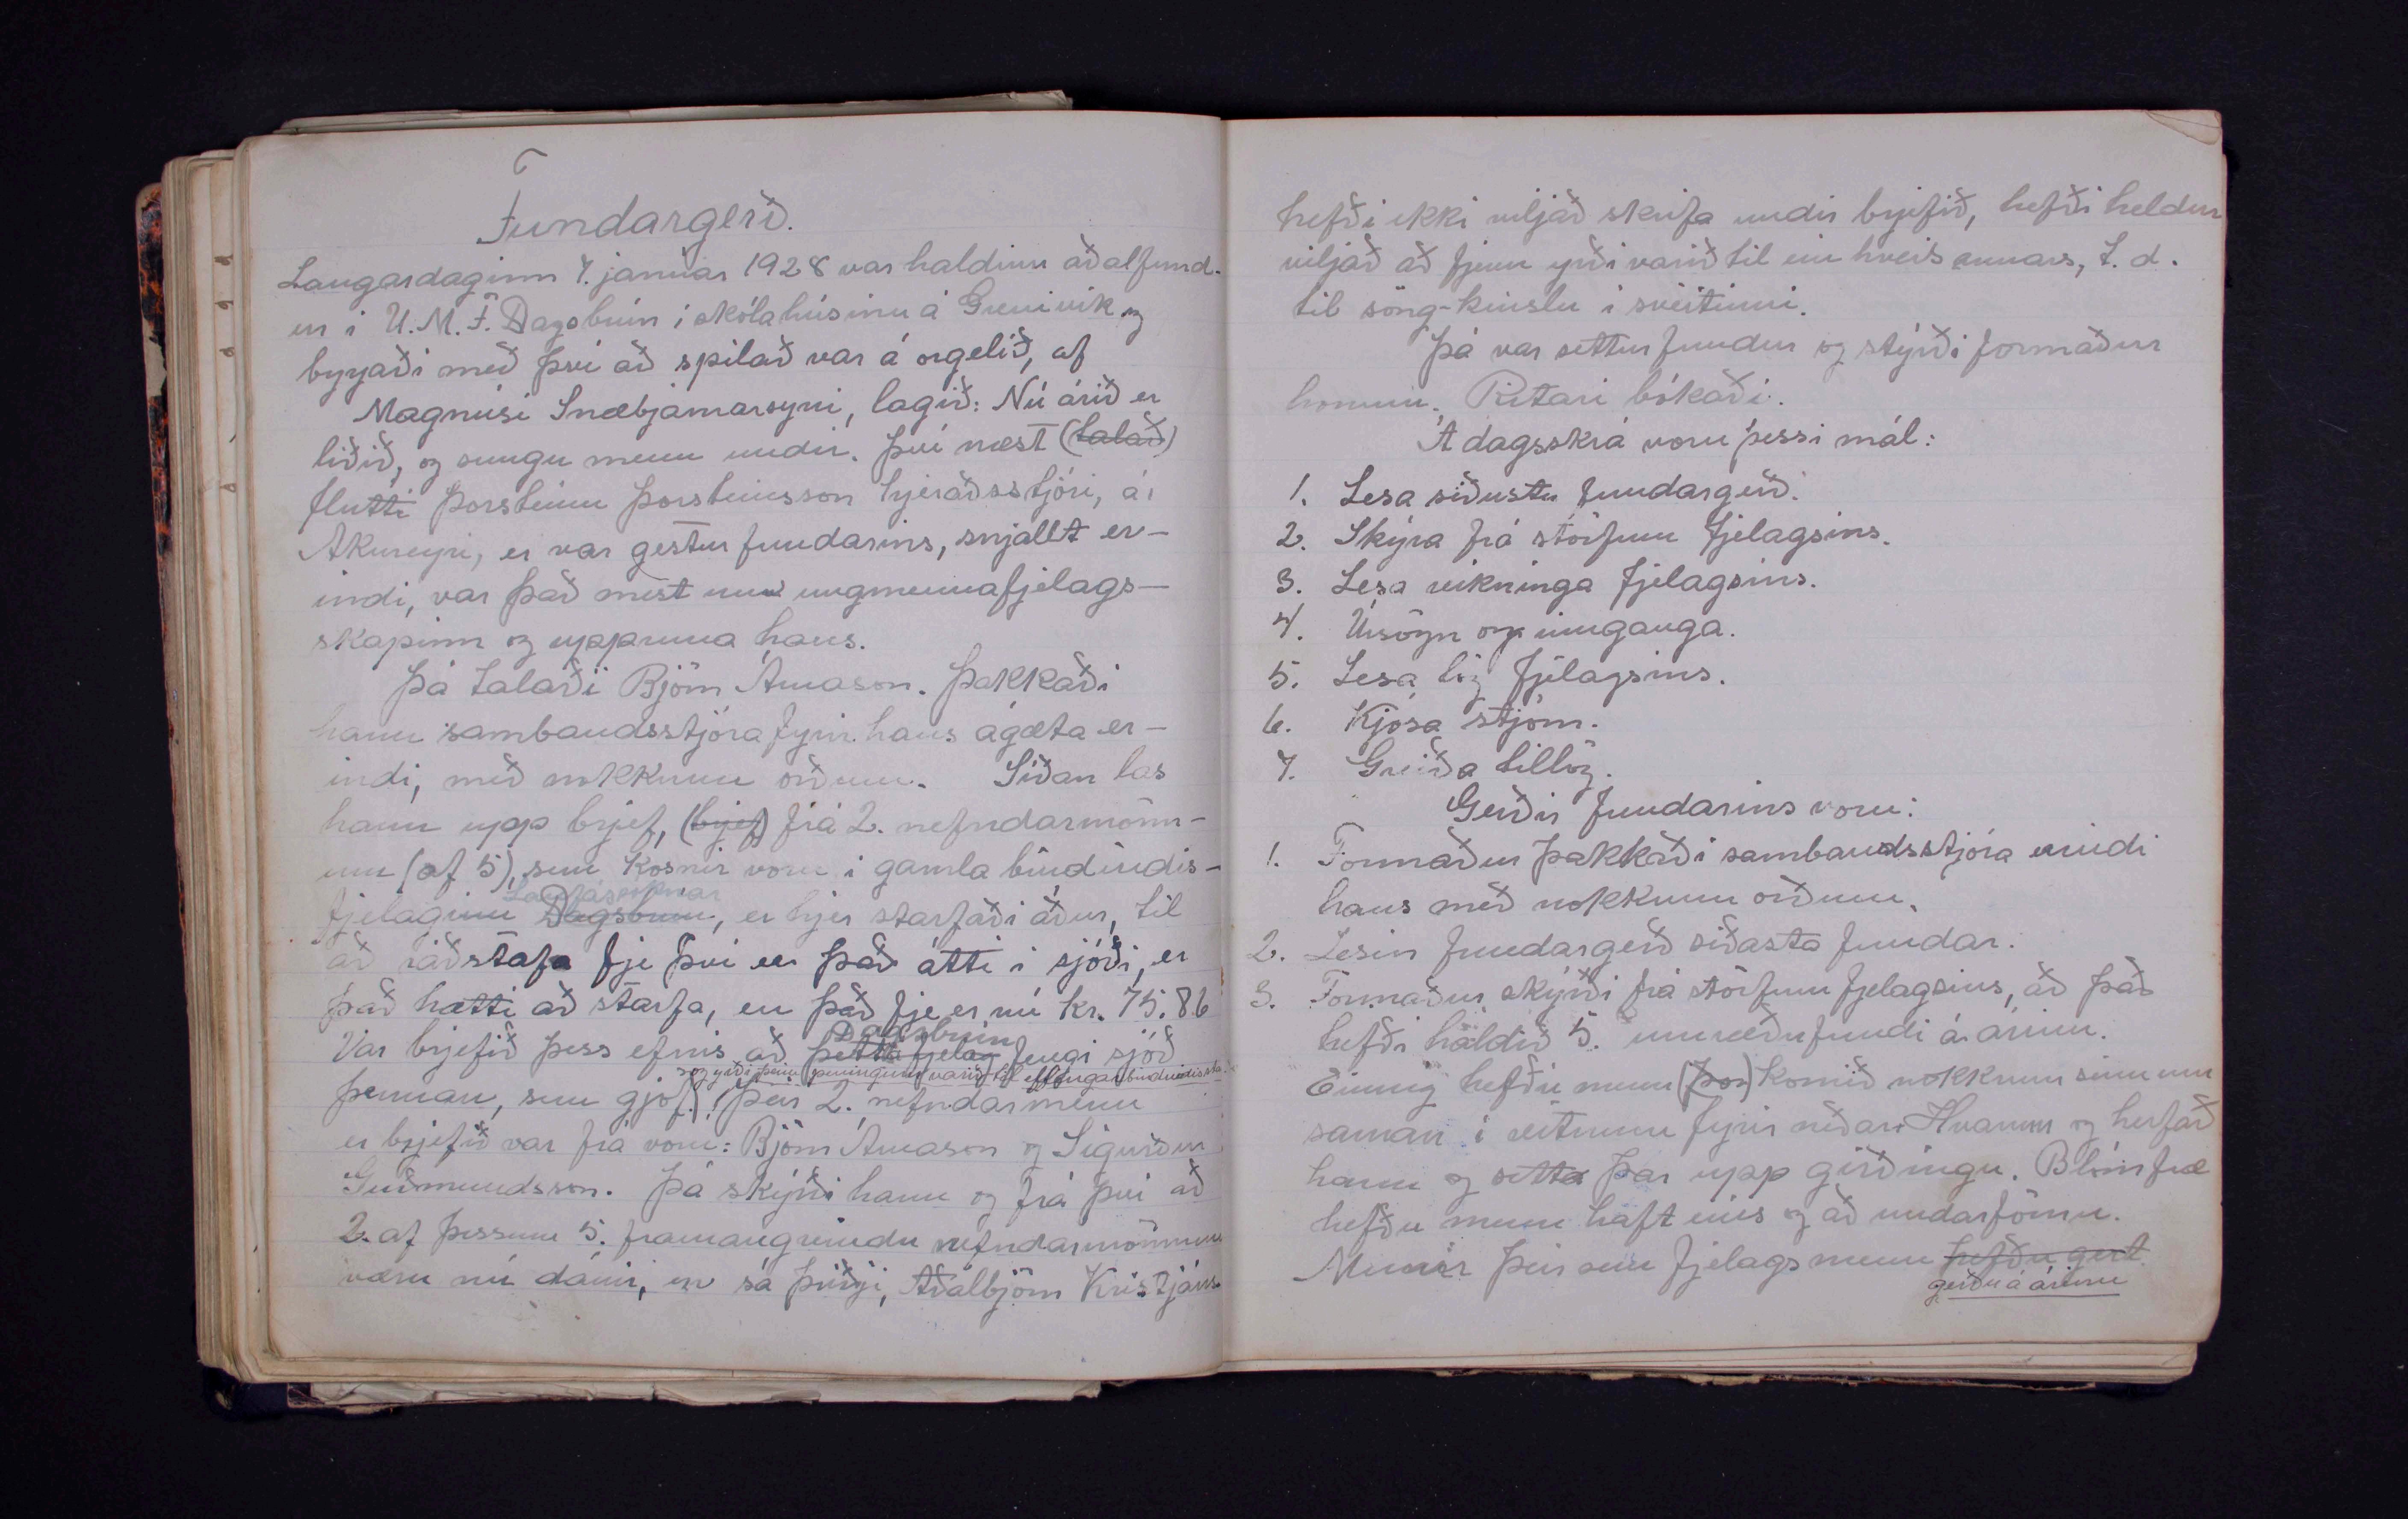 Fundargerð.
Laugardaginn 7. janúar 1928 var haldinn aðalfund-
ur í U.M.F. Dagsbrún í skólahúsinu á Grenivík og
byrjaði með því að spilað var á orgelið, af
Magnúsi Snæbjarnarsyni, lagið: Nú árið er
liðið, og sungu menn undir. Því næst (talað)
flutti Þorsteinn Þorsteinsson hjeraðsstjóri, á
Akureyri, er var gestur fundarins, snjallt er-
indi, var það mest um ungmennafjelags-
skapinn og uppruna hans.
Þá talaði Björn Árnason. Þakkaði
hann sambandsstjóra fyrir hans ágæta er-
indi, með nokkrum orðum. Síðan las
hann upp brjef, (brjef) frá 2. nefndarmönn-
um (af 5), sem kosnir voru í gamla bindindis-
fjelaginu Dagsbrun, er hjer starfaði áður, til
að ráðstafa fje því er það átti í sjóði, er
það hætti að starfa, en það fje er nú kr. 75.86
Dagsbrún
Var brjefið þess efnis að þetta fjelag fengi sjóð
og yrði þeim peningum varið til eflingar bindindissta
þennan, sem gjöf. Þeir 2. nefndarmenn
er brjefið var frá voru: Björn Árnason og Sigurður
Guðmundsson. Þá skýrði hann og frá því að
2. af þessum 5. framangreindu nefndarmönnum
væru nú dánir, en sá þriðji, Aðalbjörn Kristjáns
hefði ekki viljað skrifa undir brjefið, hefði heldur
viljað að fjenu yrði varið til ein hvers annars, t.d.
til söng-kenslu í sveitinni.
Þá var settur fundur og stýrði formaður
honum. Ritari bókaði.
Á dagsskrá voru þessi mál:
1. Lesa síðustu fundargerð.
2. Skýra frá störfum fjelagsins.
3. Lesa reikninga fjelagsins.
4. Úrsögn og innganga.
5. Lesa lög fjelagsins.
6. Kjósa stjórn.
7. Greiða tillög.
Gerðir fundarins voru:
1. Formaður þakkaði sambandsstjóra erindi
hans með nokkrum orðum.
2. Lesin fundargerð síðasta fundar.
3. Formaður skýrði frá störfum fjelagsins, að það
hefði haldið 5. umræðufundi á árinu.
Einnig hefðu menn (þar) komið nokkrum sinnum
saman í reitnum fyrir neðan Hvamm og herfað
hann og setta þar upp girðingu. Blómfræ
hefðu menn haft eins og að undanförnu.
Munir þeir sem fjelagsmenn hefðu gert
gerðu á árinu